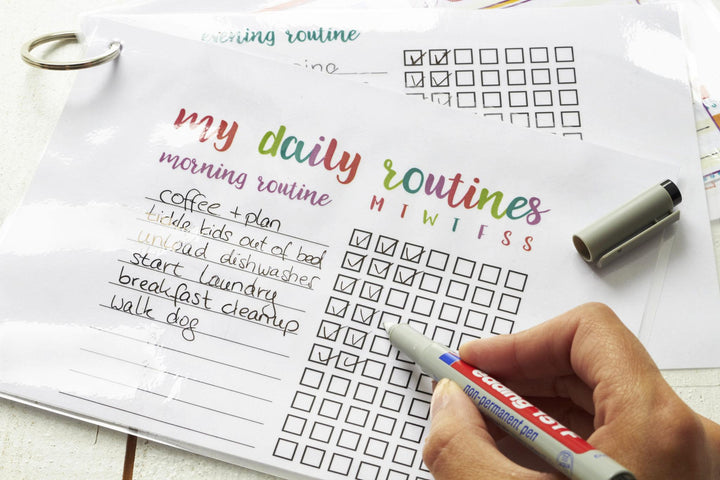 evening routine
my daily routines
morning routine
M T W T F S S
coffee + plan
tickle kids out of bed
unload dishwasher
start laundry
breakfast cleanup
walk dog
edding 151F
non-permanent pen